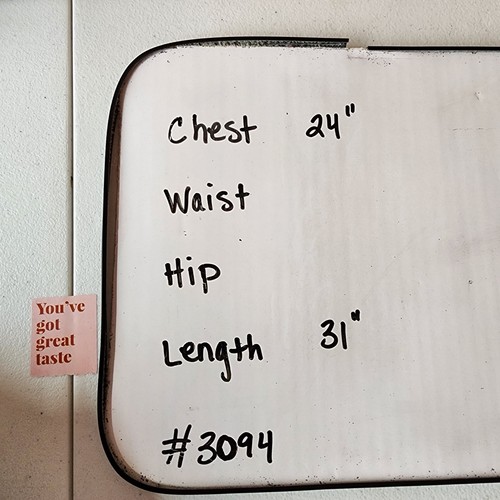 Chest 24"
Waist
Hip
Length 31"
#3094
You've
got
great
taste